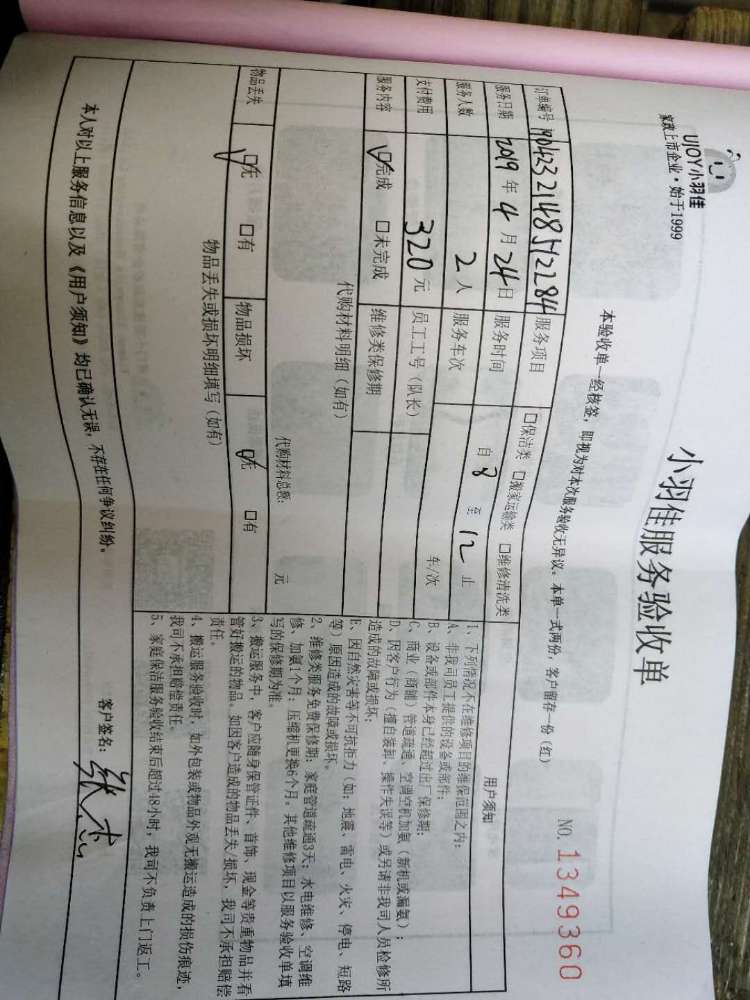 UJOY小羽佳
家政上市企业·始于1999
小羽佳服务验收单
NO. 1349360
本验收单一经核签，即视为对本次服务验收无异议。本单一式两份，客户留存一份（红）
订单编号 1904232148512284 服务项目 □保洁类 □搬家运输类 □维修清洗类
服务日期 2019 年 4 月 24 日 服务时间 自 8 至 12 止
服务人数 2 人 服务车次 车/次
支付费用 320 元 员工工号（队长）
服务内容 ☑完成 □未完成 维修类保修期
代购材料明细（如有）
代购材料总额： 元
物品丢失 ☑无 □有 物品损坏 ☑无 □有
物品丢失或损坏明细填写（如有）
用户须知
1、下列情况不在维修项目的维保范围之内：
A、非我司员工提供的设备或部件；
B、设备或部件本身已经超过出厂保修期；
C、商业（商铺）管道疏通、空调空机加氨（新机或漏氨）；
D、因客户行为（擅自装卸、操作失误等）或另请非我司人员检修所
造成的故障或损坏；
E、因自然灾害等不可抗拒力（如：地震、雷电、火灾、停电、短路
等）原因造成的故障或损坏。
2、维修类服务免费保修期：家庭管道疏通3天；水电维修、空调维
修、加氨1个月；压缩机更换6个月。其他维修项目以服务验收单填
写的保修期为准。
3、搬运服务中，客户应随身保管证件、首饰、现金等贵重物品并看
管好搬运的物品。如因客户造成的物品丢失、损坏，我司不承担赔偿
责任。
4、搬运服务验收时，如外包装或物品外观无搬运造成的损伤痕迹，
我司不承担赔偿责任。
5、家庭保洁服务验收结束后超过48小时，我司不负责上门返工。
本人对以上服务信息以及《用户须知》均已确认无误，不存在任何争议纠纷。
客户签名：张杰